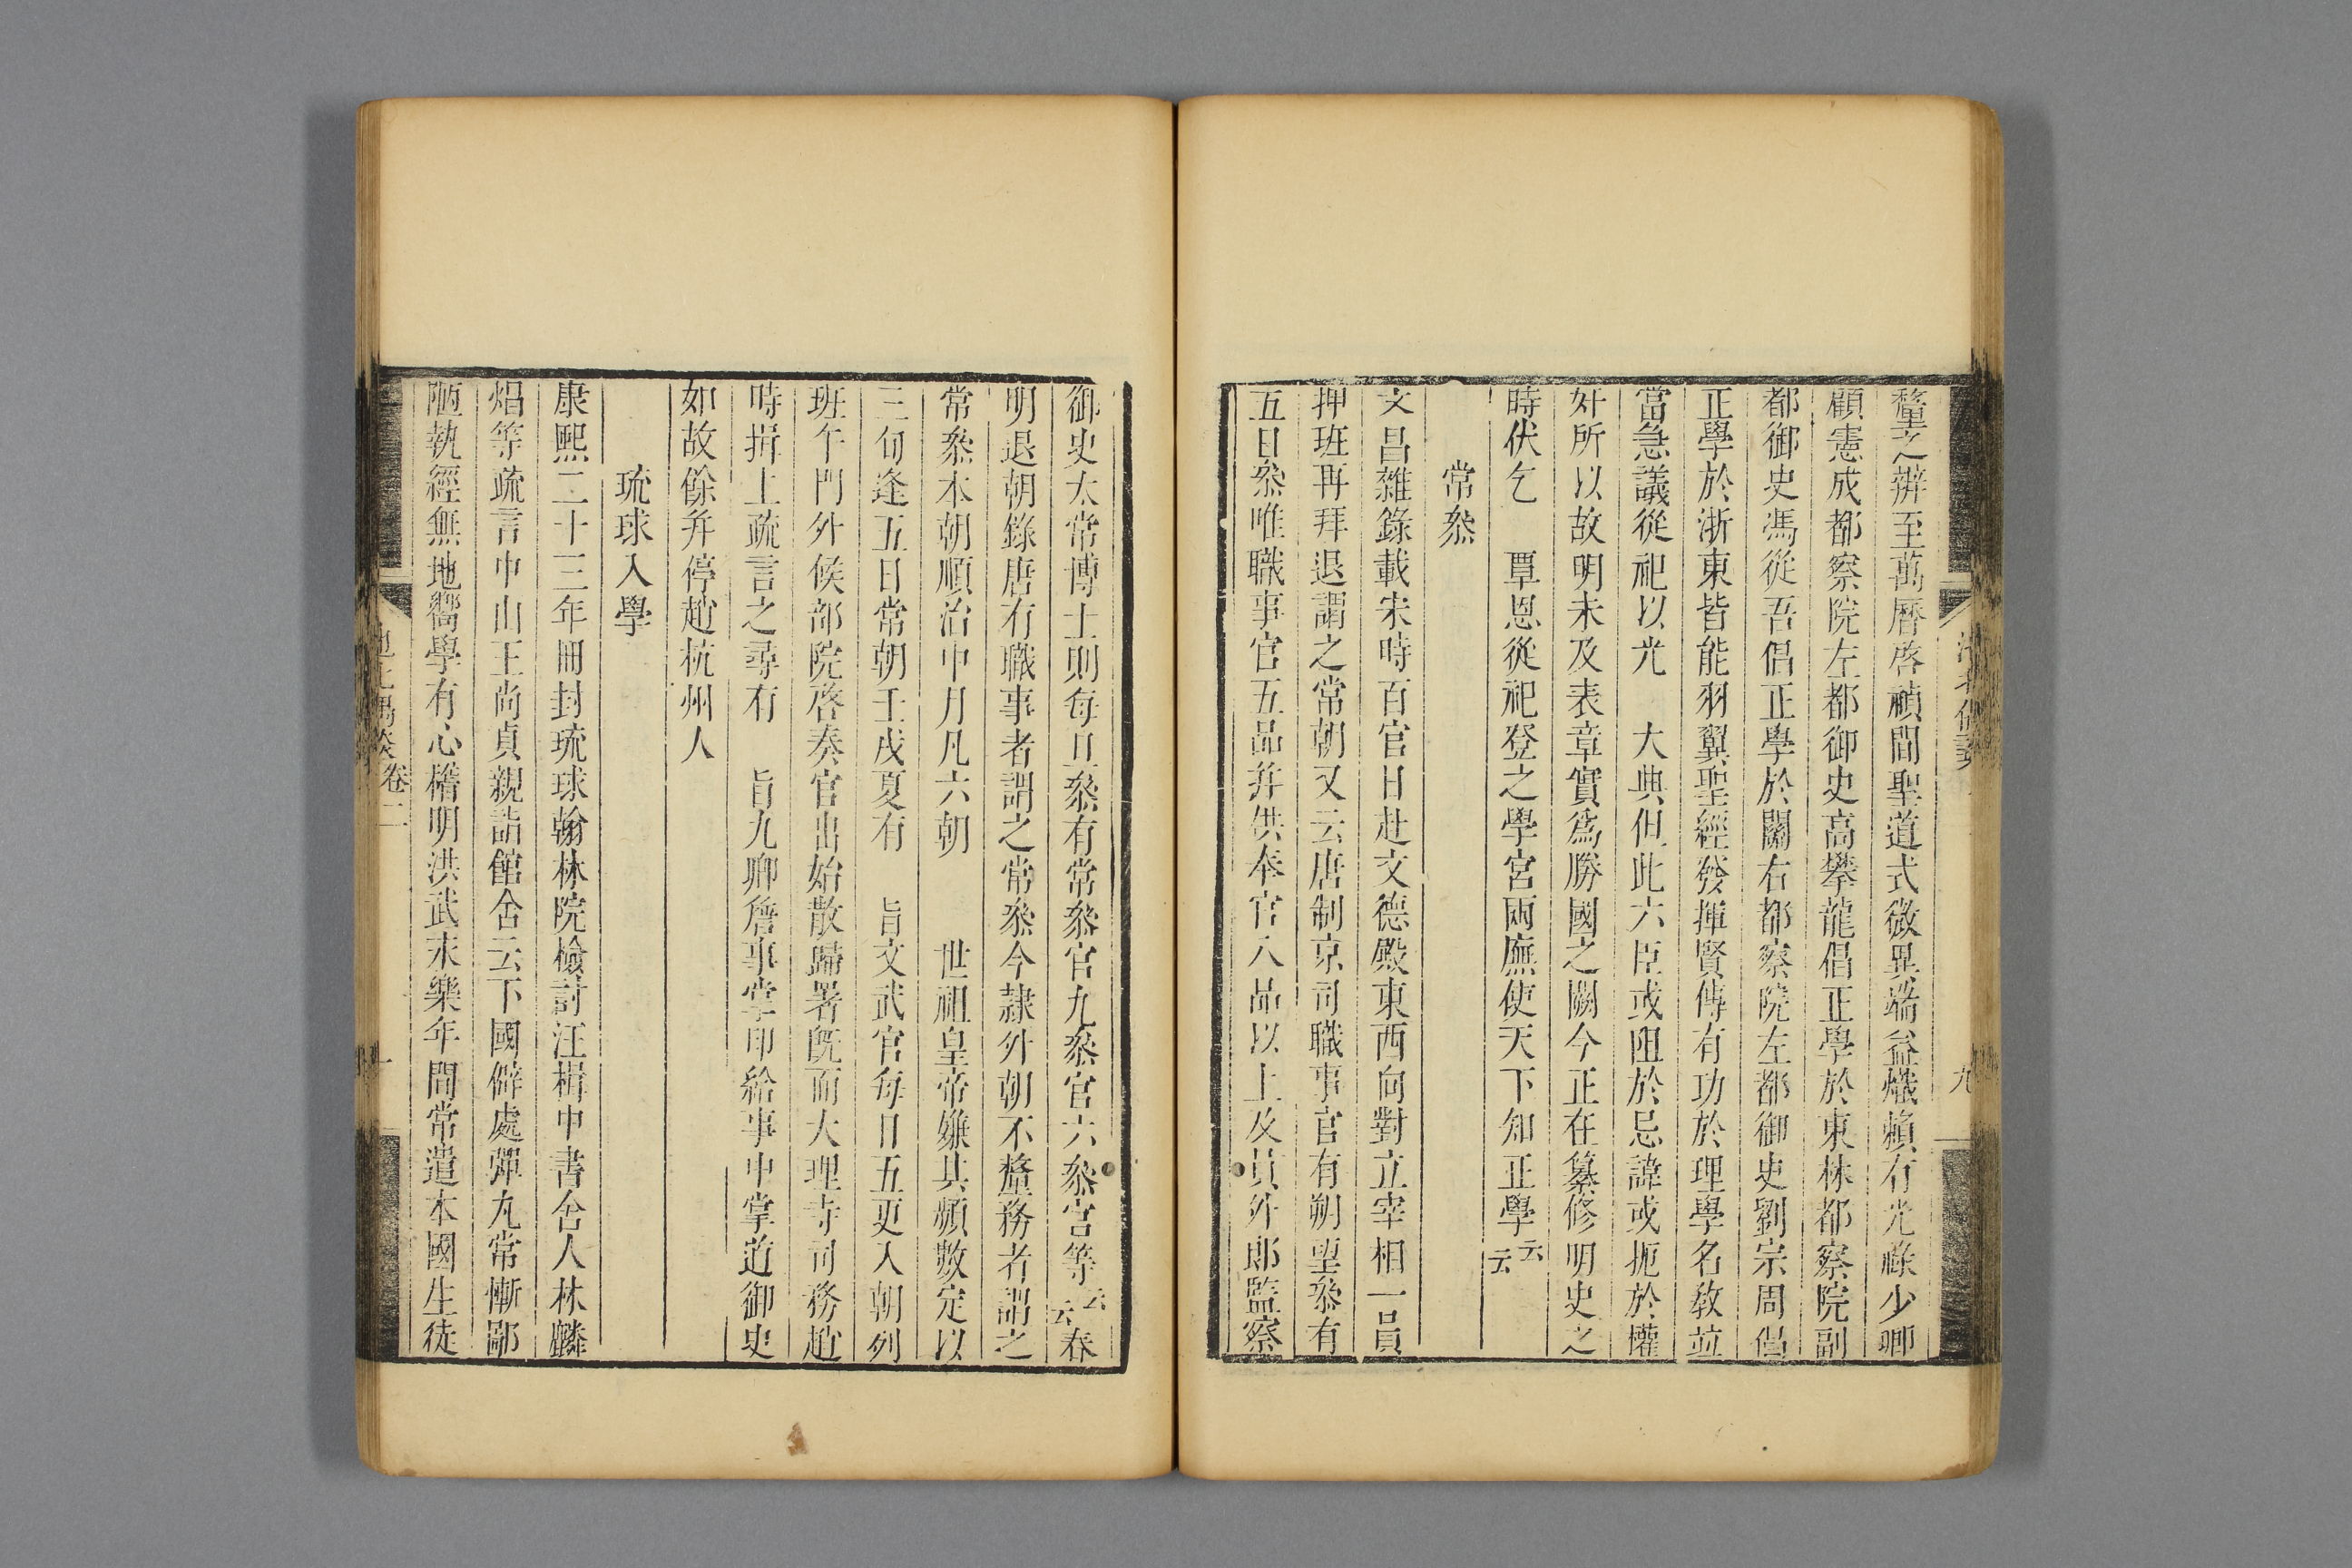 釐之辨至萬曆啓禎間聖道式微異端益熾賴有光祿少卿
顧憲成都察院左都御史高攀龍倡正學於東林都察院副
都御史馮從吾倡正學於關右都察院左都御史劉宗周倡
正學於浙東皆能羽翼聖經發揮賢傳有功於理學名教並
當急議從祀以光　大典但此六臣或阻於忌諱或扼於權
奸所以故明未及表章實爲勝國之闕今正在纂修明史之
時伏乞　覃恩從祀登之學宮兩廡使天下知正學云云
常叅
文昌雜錄載宋時百官日赴文德殿東西向對立宰相一員
押班再拜退謂之常朝又云唐制京司職事官有朔望叅有
五日叅唯職事官五品并供奉官八品以上及員外郎監察
御史太常博士則每日叅有常叅官九叅官六叅官等云云春
明退朝錄唐有職事者謂之常叅今隷外朝不釐務者謂之
常叅本朝順治中月凡六朝　世祖皇帝嫌其頻數定以
三旬逢五日常朝壬戌夏有　旨文武官每日五更入朝列
班午門外候部院啓奏官出始散歸署旣而大理寺司務趙
時揖上疏言之尋有　旨九卿詹事掌印給事中掌道御史
如故餘并停趙杭州人
琉球入學
康熙二十三年冊封琉球翰林院檢討汪楫中書舍人林麟
焻等疏言中山王尚貞親詣館舍云下國僻處彈丸常慚鄙
陋執經無地嚮學有心稽明洪武末樂年間常遣本國生徒
卷二
九
十